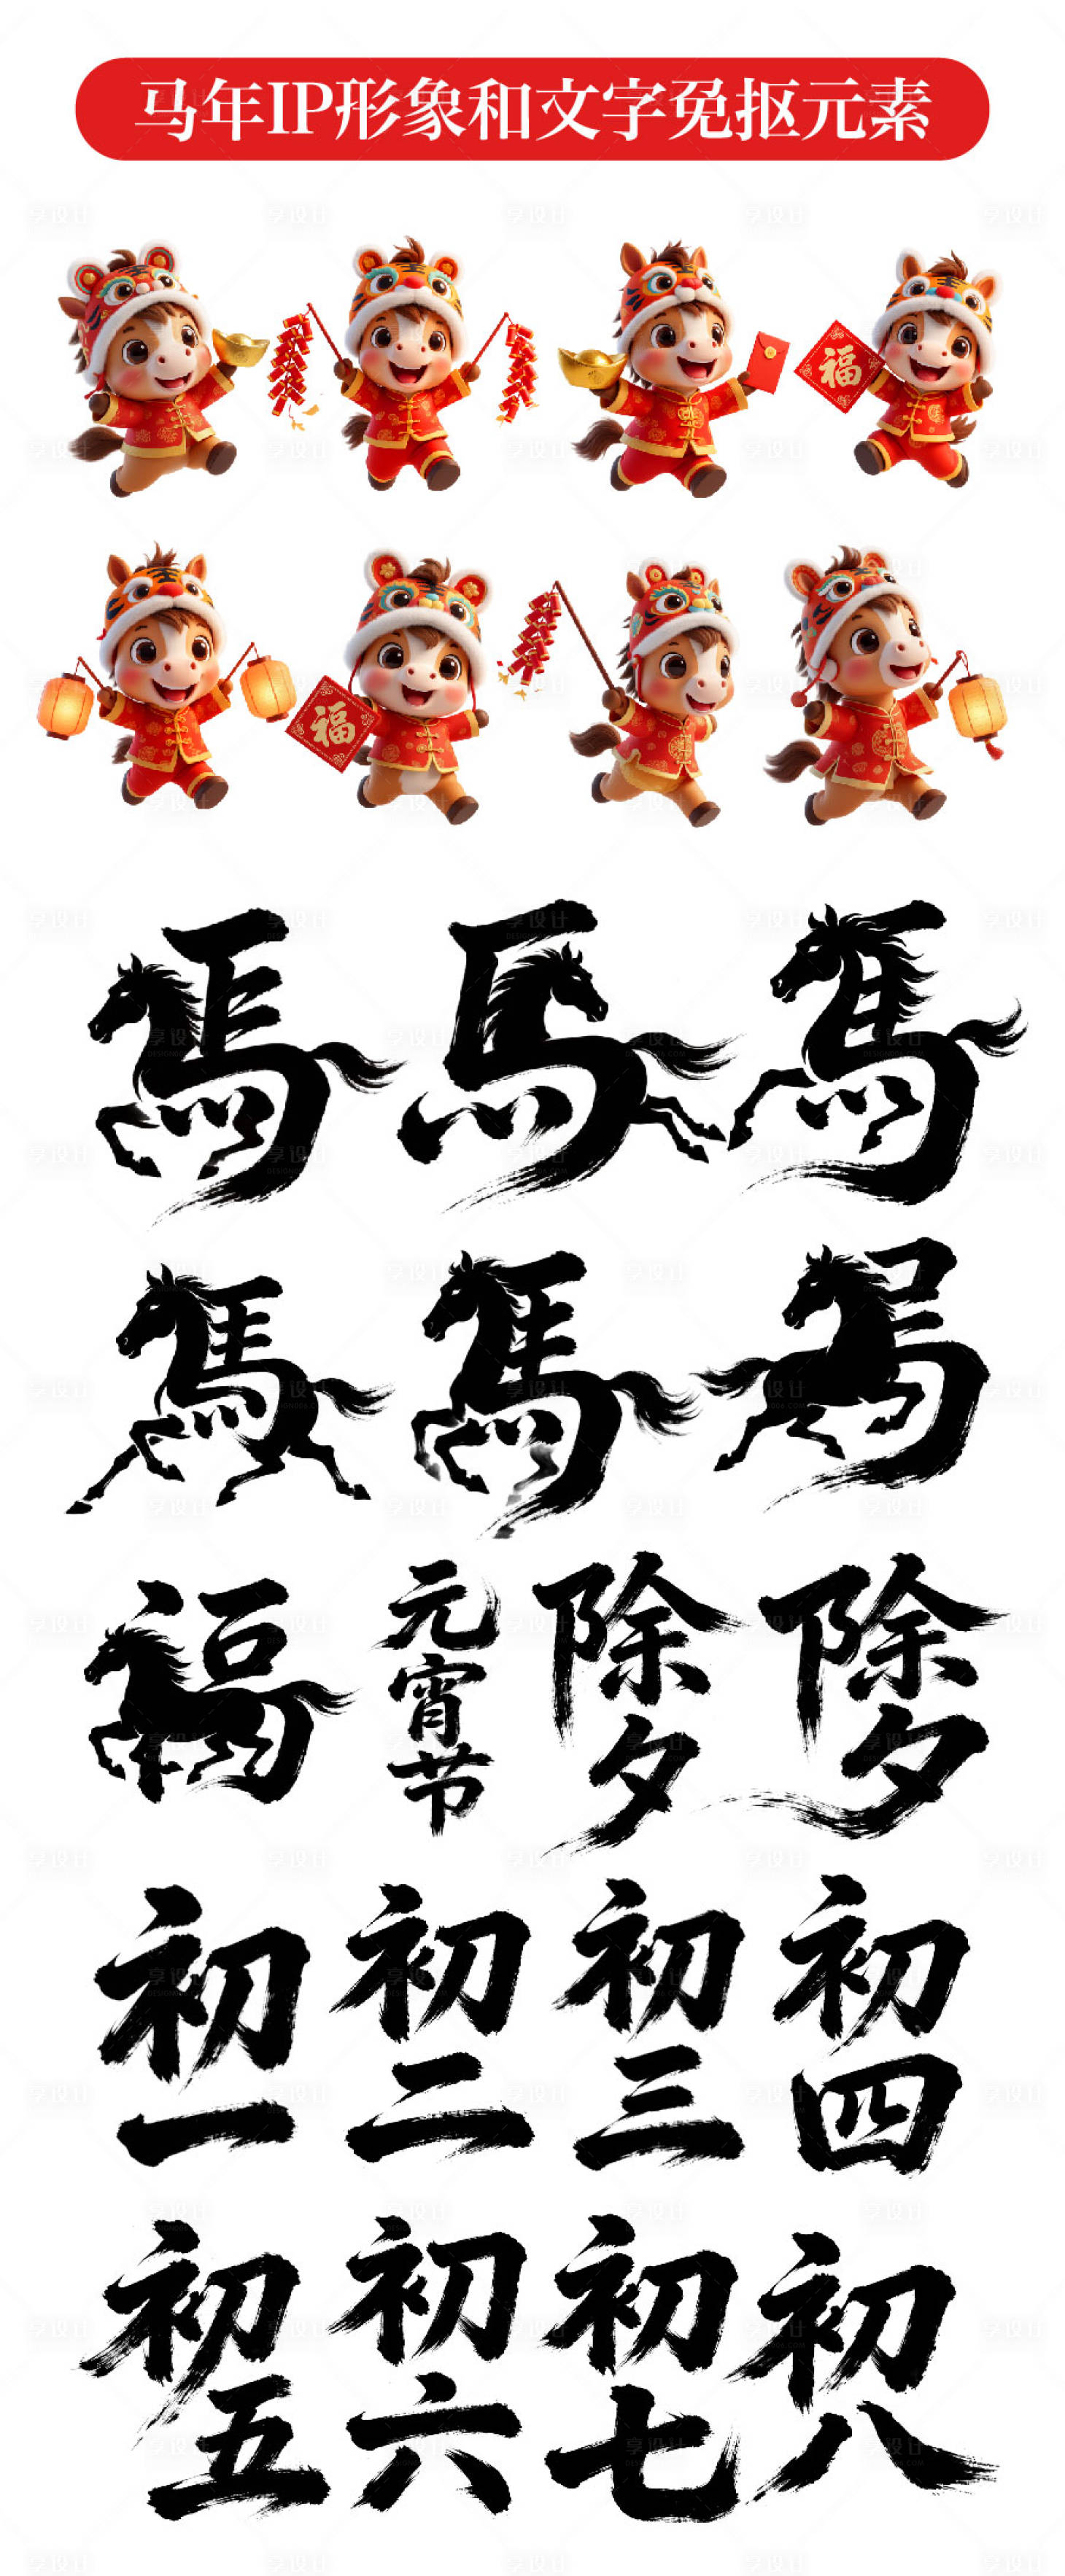 马年IP形象和文字免抠元素
福
福
馬 馬 馬
馬 馬 馬
福 元宵节 除夕 除夕
初一 初二 初三 初四
初五 初六 初七 初八
享设计
DESIGN006.COM